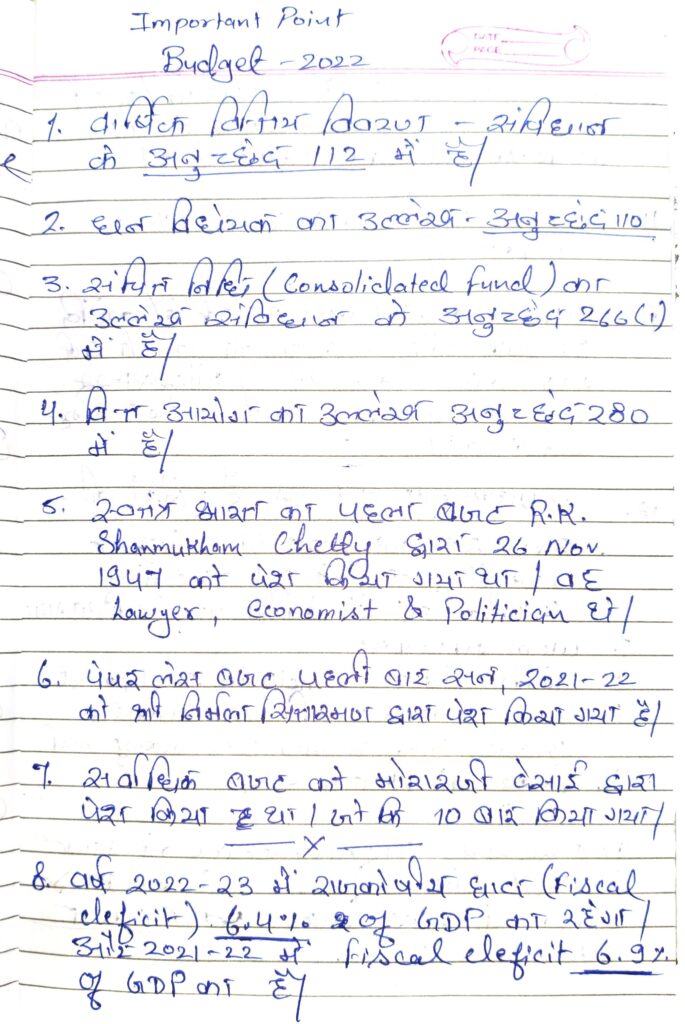 Important Point
DATE
PAGE
Budget - 2022
1. वार्षिक वित्तिय विवरण - संविधान
के अनुच्छेद 112 में है।
2. धन विधेयक का उल्लेख - अनुच्छेद 110
3. संचित निधि (Consolidated fund) का
उल्लेख संविधान के अनुच्छेद 266(1)
में है।
4. वित्त आयोग का उल्लेख अनुच्छेद 280
में है।
5. स्वतंत्र भारत का पहला बजट R.K.
Shanmukham Chetty द्वारा 26 Nov.
1947 को पेश किया गया था। वह
Lawyer, economist & Politician थे।
6. पेपर लेस बजट पहली बार सन, 2021-22
को श्री निर्मला सितारमण द्वारा पेश किया गया है।
7. सर्वाधिक बजट को मोरारजी देसाई द्वारा
पेश किया था। जो कि 10 बार किया गया।
X
8. वर्ष 2022-23 में राजकोषीय घाटा (fiscal
deficit) 6.4% of GDP का रहेगा।
और 2021-22 में fiscal deficit 6.9%
of GDP का है।